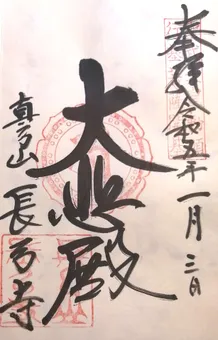 奉拝 令和五年一月三日
大悲殿
真弓山 長弓寺